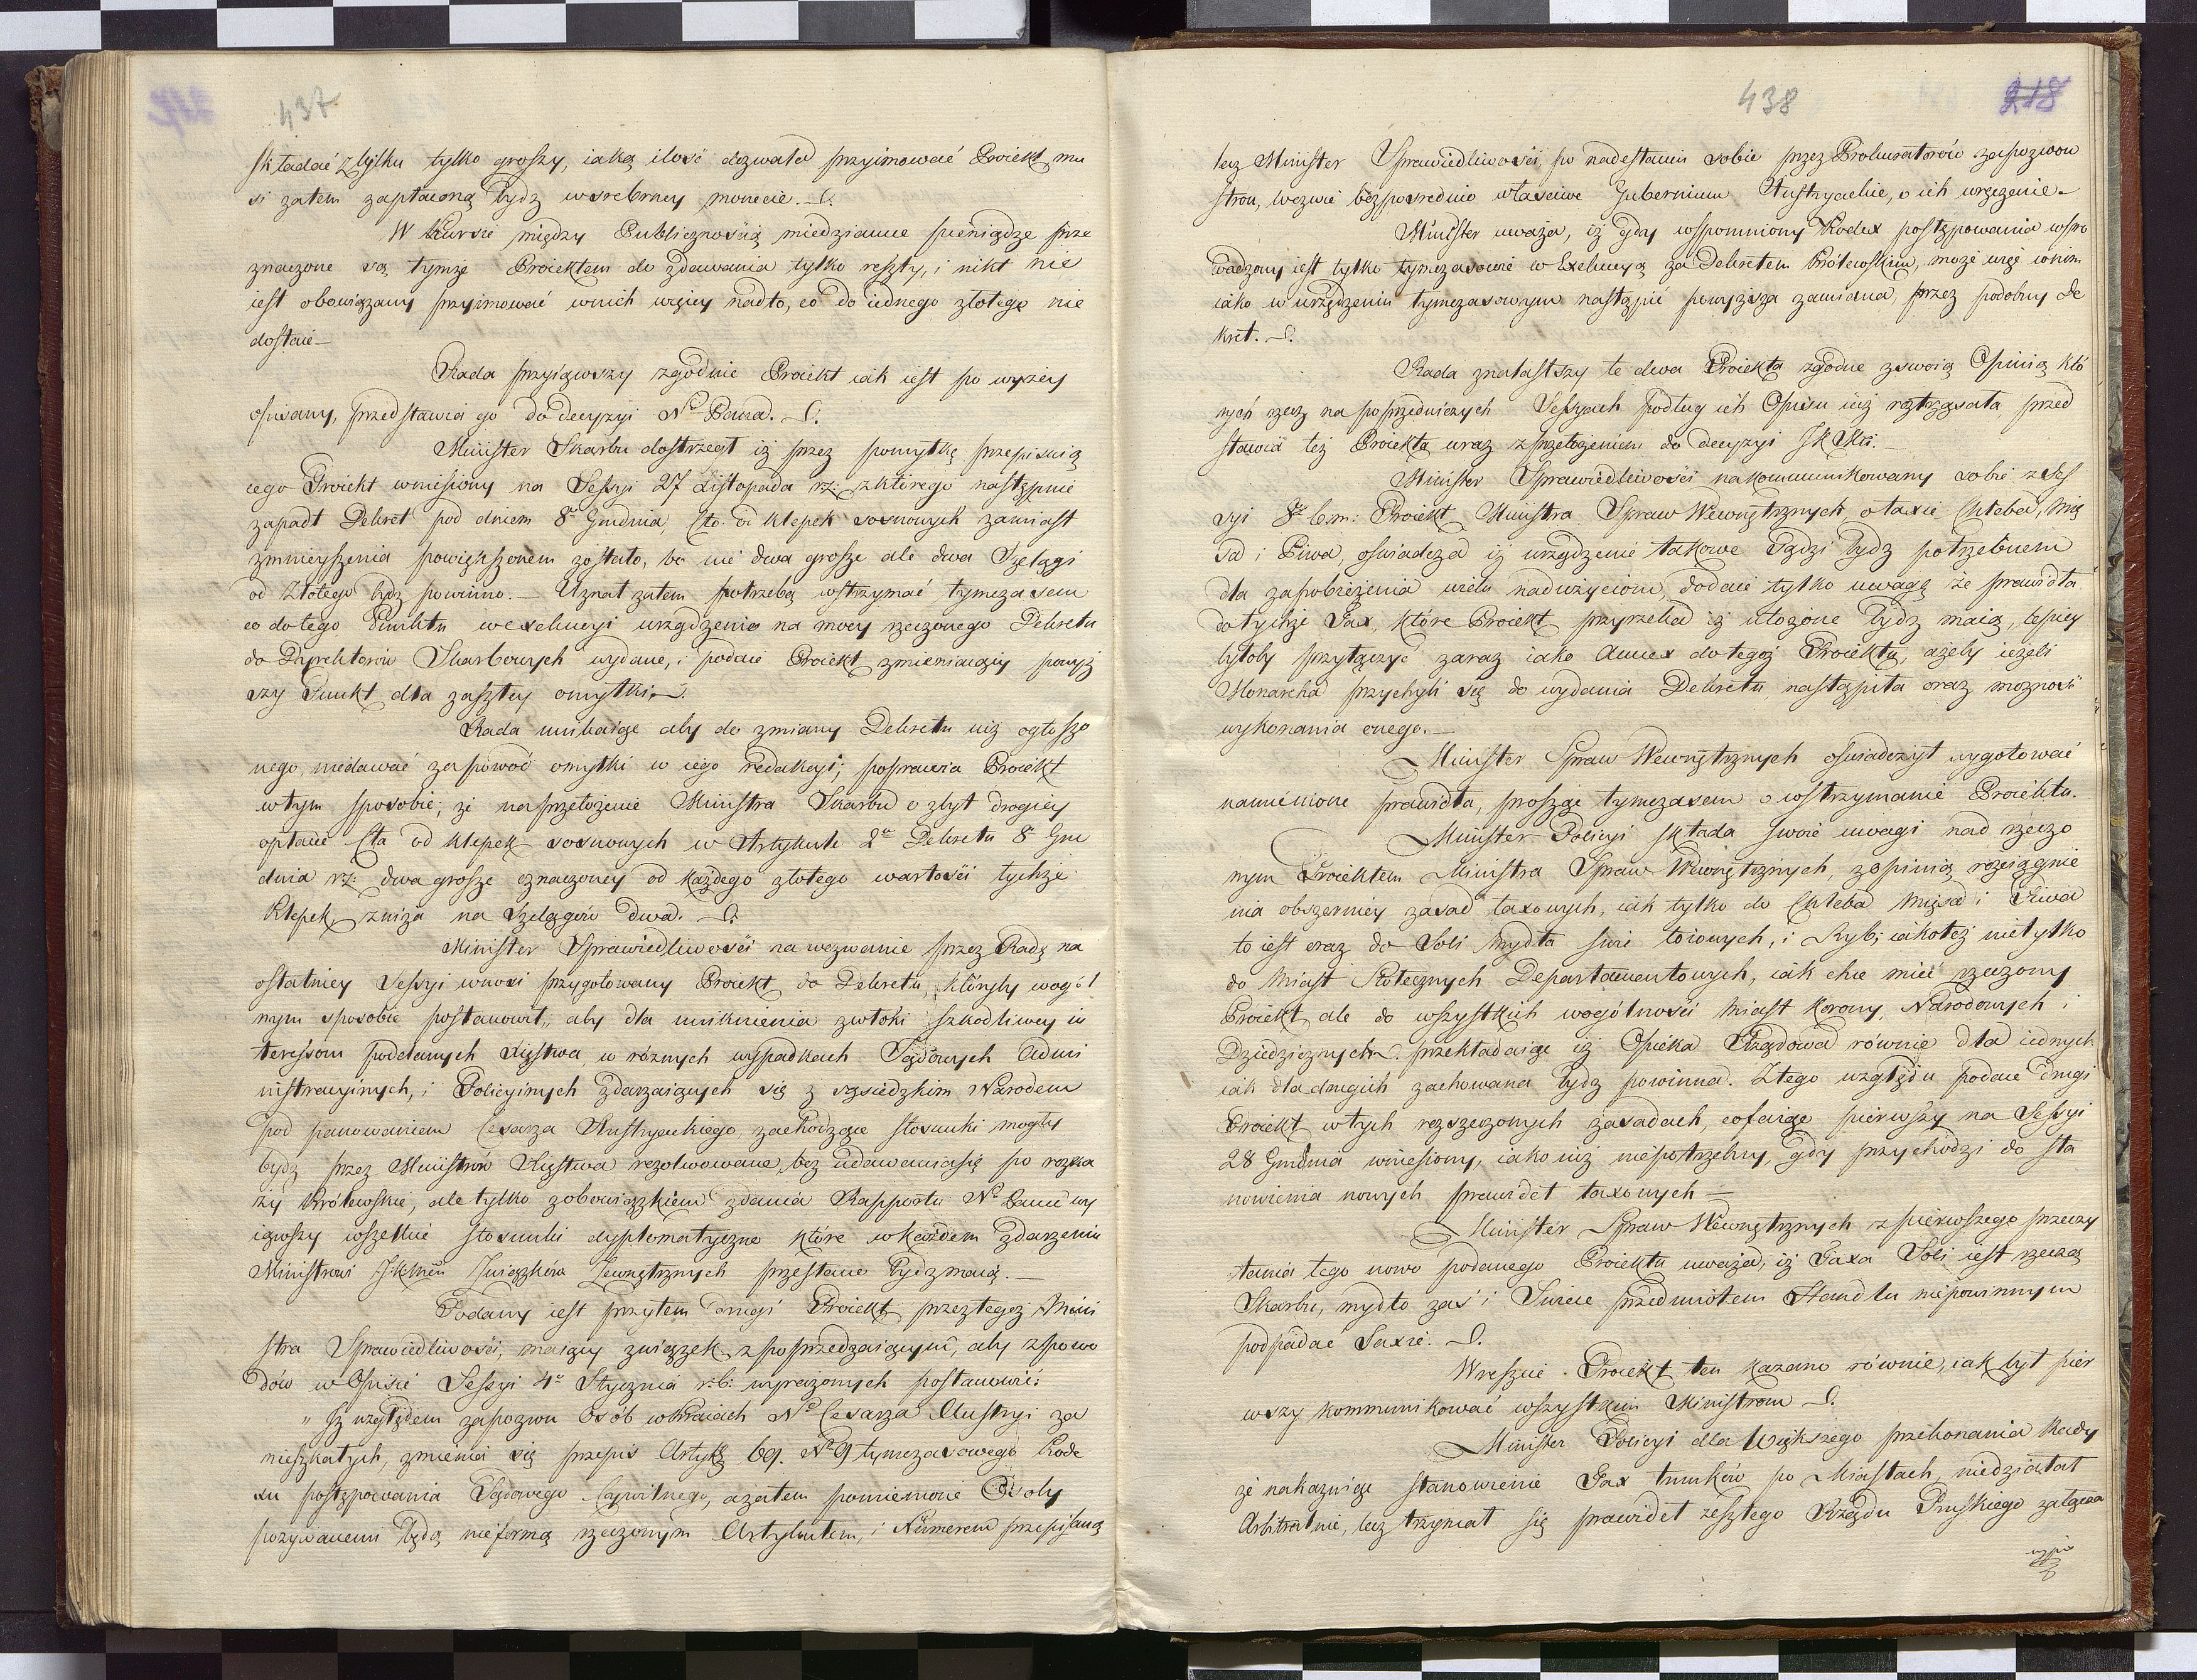 437
składać zbytku tylko groszy, iaką ilość dozwala przyimować Proiekt mu
si zatem zapłaconą bydz w srebrney monecie.
W kursie między Publicznością miedziane pieniądze prze
znaczone są tymże Proiektem do zdawania tylko reszty, i nikt nie
iest obowiązany przyimować w nich więcey nadto, co do iednego złotego nie
dostaie
Rada przyiąwszy zgodnie Proiekt iak iest po wyżey
opisany, przedstawia go do decyzyi Nº Pana.
Minister Skarbu dostrzegł iż przez pomyłkę przepisuią
cego Proiekt wniesiony na Sessyi 27 Listopada r.z. z którego nastąpnie
zapadł Dekret pod dniem 8º Grudnia, Cło od klepek sosnowych zamiast
zmnieyszenia powiększonem zostało, bo nie dwa grosze ale dwa Szelągi
od złotego bydz powinno. Uznał zatem potrzebą wstrzymać tymczasem
co do tego Punktu w exekucyi urządzenia na mocy rzeczonego Dekretu
do Dyrektorów Skarbowych wydane, i podaie Proiekt zmieniaiący powyż
szy Punkt dla zaszłey omyłki.
Rada unikaiąc aby do zmiany Dekretu iuż ogłoszo
nego, niedawać za powód omyłki w iego redakcyi; poprawia Proiekt
w tym sposobie; że na przełożenie Ministra Skarbu o zbyt drogiey
opłacie Cła od klepek sosnowych w Artykule 2m Dekretu 8º Gru
dnia r.z. dwa grosze oznaczoney od każdego złotego wartości tychże
klepek, zniża na Szelągów dwa.
Minister Sprawiedliwości na wezwanie przez Radę na
ostatniey Sessyi wnosi przygotowany Proiekt do Dekretu, któryby wogól
nym sposobie postanowił, aby dla uniknienia zwłoki szkodliwey in
teressom poddanych Xięstwa, w różnych wypadkach Sądowych Admi
nistracyinych, i Policyinych zdarzaiących się z sąsiedzkim Narodem
pod panowaniem Cesarza Austryackiego, zachodzące stosunki mogły
bydz przez Ministrów Xięstwa rezolwowane, bez udawania się po rozka
zy Królewskie, ale tylko z obowiązkiem zdania Rapportu Nº Panu wy
iąwszy wszelkie stosunki dyplomatyczne które w każdem zdarzeniu
Ministrowi JKMci Związków Zewnętrznych przesłane bydz maią.
Podany iest przytem drugi Proiekt przez tegoż Mini
stra Sprawiedliwości, maiący związek z poprzedzaiącym, aby z powo
dów w Opisie Sessyi 4º Stycznia r.b. wyrażonych postanowić:
" Iż względem zapozwu Osób w kraiach Nº Cesarza Austryi za
mieszkałych, zmienia się przepis Artyku 69. Nº 9 tymczasowego Kode
xu postępowania Sądowego Cywilnego, a zatem pomienione Osoby
pozywanemi będą nie formą rzeczonym Artykułem, i Numerem przepisaną
438
218
lecz Minister Sprawiedliwości, po nadesłaniu sobie przez Prokuratorów zapozwów
stron, wezwie bezpośrednio właściwe Gubernium Austryackie, o ich wręczenie.
Minister uważa, iż gdy wspomniony Kodex postępowania wpro
wadzony iest tylko tymczasowie w Exekucyą za Dekretem Królewskim, może więc w nim
iako w urządzeniu tymczasowym nastąpić powyższa zamiana, przez podobny De
kret.
Rada znalazłszy te dwa Proiekta zgodne z swoią Opinią któ
rych rzecz na poprzedniczych Sessyach podług ich Opisu iuż roztrząsała przed
stawia też Proiekta wraz z przełożeniem do decyzyi JKMci.
Minister Sprawiedliwości nakommunikowany sobie z Ses
syi 8ª b.m. Proiekt Ministra Spraw Wewnętrznych o taxie Chleba, Mię
sa i Piwa, oświadcza iż urządzenie takowe sądzi bydz potrzebnem
dla zapobieżenia wielu nadużyciom, dodaie tylko uwagę że prawidła
do tychże Tax, które Proiekt przyrzeka iż ułożone bydz maią, lepiey
byłoby przyłączyć zaraz iako Annex do tegoż Proiektu, ażeby ieżeli
Monarcha przychyli się do wydania Dekretu, nastąpiła oraz możność
wykonania onego.
Minister Spraw Wewnętrznych oświadczył wygotować
namienione prawidła, prosząc tymczasem o wstrzymanie Proiektu.
Minister Policyi składa swoie uwagi nad rzeczo
nym Proiektem Ministra Spraw Wewnętrznych, z opinią rozciągnie
nia obszerniey zasad taxowych, iak tylko do Chleba Mięsa i Piwa
to iest oraz do Soli Mydła świc łoiowych, i Ryb; iakoteż nietylko
do Miast Stołecznych Departamentowych, iak chce mieć rzeczony
Proiekt, ale do wszystkich wogólności Miast Korony, Narodowych i
Dziedzicznych. przekładaiąc iż Opieka Rządowa równie dla iednych
iak dla drugich zachowana bydz powinna. Z tego względu podaie drugi
Proiekt w tych rozszerzonych zasadach, cofaiąc pierwszy na Sessyi
28 Grudnia wniesiony, iako iuż niepotrzebny, gdy przychodzi do sta
nowienia nowych prawideł taxowych
Minister Spraw Wewnętrznych z pierwszego przeczy
tania tego nowo podanego Proiektu uważa, iż Taxa Soli iest rzeczą
Skarbu, mydło zaś i Świece przedmiotem Handlu niepowinnym
podpadać Taxie.
Wreszcie Proiekt ten kazano równie, iak był pier
wszy kommunikować wszystkim Ministrom
Minister Policyi dla większego przekonania Rady
że nakazuiąc stanowienie Tax trunków po Miastach, niedziałał
Arbitralnie, lecz trzymał się prawideł zeszłego Rządu Pruskiego załącza